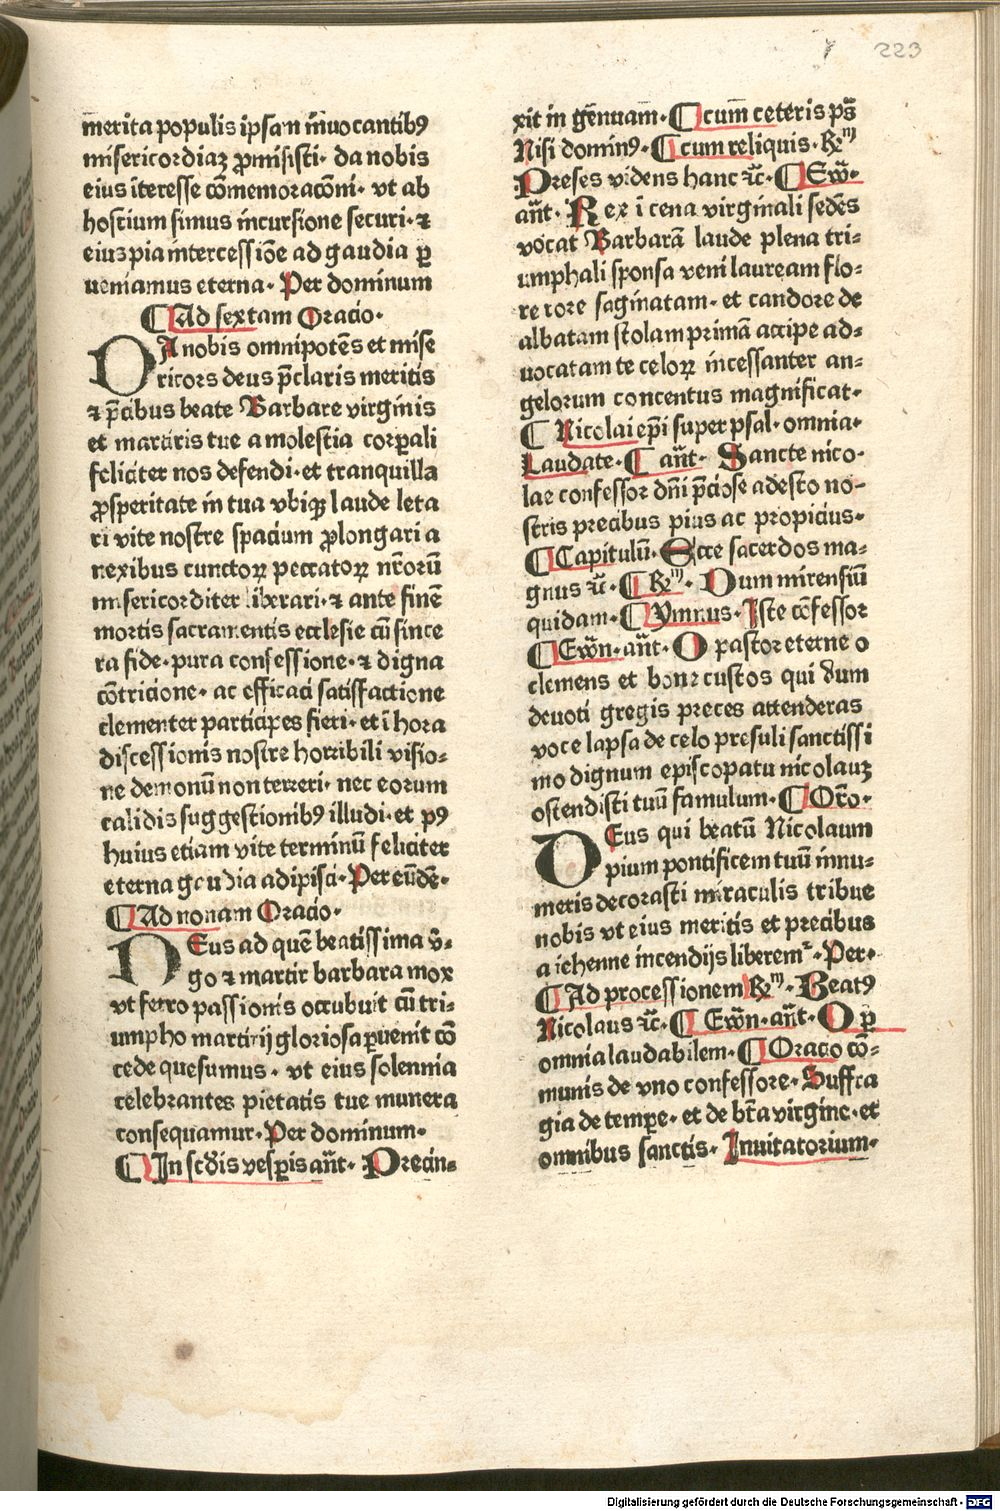 223
merita populis ip̄san īnuocantibꝰ
misericordiaꝫ ꝓmisisti· da nobis
eius īteresse cōmemoracōni· vt ab
hostium simus incursione securi· ⁊
eiusꝫ pia intercessiōe ad gaudia ꝑ
ueniamus eterna· Per dominum
¶ Ad sextam Oracio·
DA nobis omnipotēs et mise
ricors deus p̄claris meritis
⁊ p̄cibus beate Barbare virginis
et martiris tue a molestia corꝑali
feliciter nos defendi· et tranquilla
ꝓsperitate in tua vbiqꝫ laude leta
ri vite nostre spacium ꝓlongari a
nexibus cunctoꝝ peccatoꝝ nr̄orū
misericorditer liberari· ⁊ ante finē
mortis sacramentis ecclesie cū since
ra fide· pura confessione· ⁊ digna
cōtricione· ac efficaci satisfactione
clementer participes fieri· et ī hora
discessionis nostre horribili visio⸗
ne demonū non terreri· nec eorum
calidis suggestionibꝰ illudi· et pꝰ
huius etiam vite terminū feliciter
eterna gaudia adipisci· Per eūdē·
¶ Ad nonam Oracio·
DEus ad quē beatissima v̄⸗
go ⁊ martir barbara mox
vt ferro passionis occubuit cū tri⸗
umpho martirij gloriosa ꝑuenit cō
cede quesumus· vt eius solennia
celebrantes pietatis tue munera
consequamur· Per dominum·
¶ In scd̄is vesꝑis an̄t· Precin⸗
xit in gēnuam· ¶ cum ceteris ps̄
Nisi dominꝰ· ¶ cum reliquis· Rm̄
Preses videns hanc ⁊c̄· ¶ Ew̄·
an̄t· Rex ī cena virginali sedēs
vocat Barbarā laude plena tri⸗
umphali sponsa veni lauream flo⸗
re rore saginatam· et candore de
albatam stolam primā accipe ad⸗
uocatam te celoꝝ incessanter an⸗
gelorum concentus magnificat·
¶ Nicolai ep̄i super psal· omnia·
Laudate· ¶ an̄t· Sancte nico⸗
lae confessor dn̄i p̄ciose adesto no⸗
stris precibus pius ac propicius·
¶ Capitulū· Ecce sacerdos ma⸗
gnus ⁊c̄· ¶ Rm̄· Dum mirensiū
quidam· ¶ Ymnus· Iste cōfessor
¶ Ew̄n· an̄t· O pastor eterne o
clemens et bone custos qui dum
deuoti gregis preces attenderas
voce lapsa de celo presuli sanctissi
mo dignum episcopatu nicolauꝫ
ostendisti tuū famulum· ¶ Or̄o·
DEus qui beatū Nicolaum
pium pontificem tuū innu⸗
meris decorasti miraculis tribue
nobis vt eius meritis et precibus
a iehenne incendijs liberem᷑· Per·
¶ Ad processionem Rm̄· Beatꝰ
Nicolaus ⁊c̄· ¶ Ew̄n· an̄t· O ꝑ
omnia laudabilem· ¶ Oracio cō⸗
munis de vno confessore· Suffra
gia de temꝑe· et de bt̄a virgine· et
omnibus sanctis· Inuitatorium·
Digitalisierung gefördert durch die Deutsche Forschungsgemeinschaft - DFG